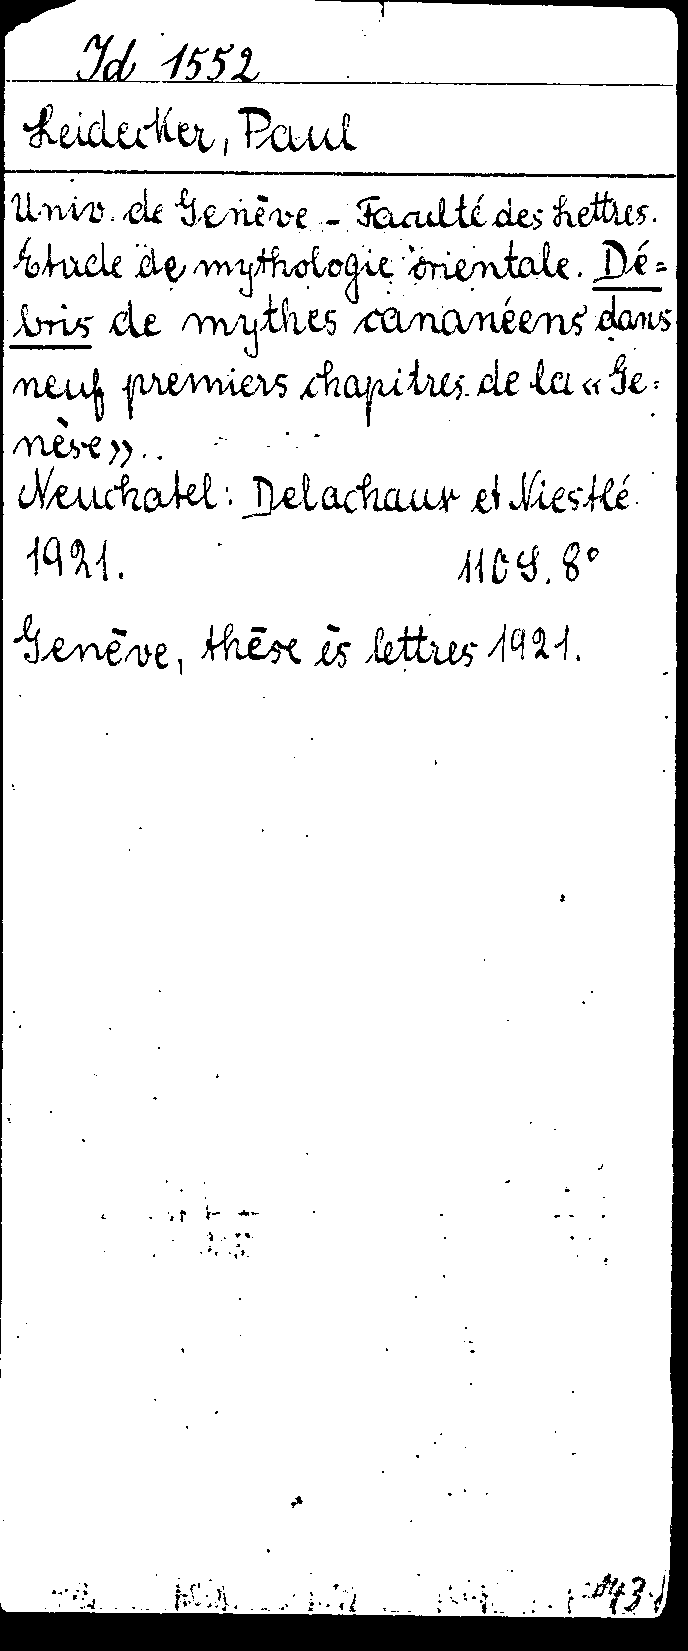 Id 1552
Leidecker, Paul
Univ. de Genève - Faculté des Lettres.
Etude de mythologie orientale. Dé=
bris de mythes cananéens dans
neuf premiers chapitres de la «Ge=
nèse»..
Neuchatel: Delachaux et Niestlé
1921. 110 S. 8°
Genève, thèse ès lettres 1921.